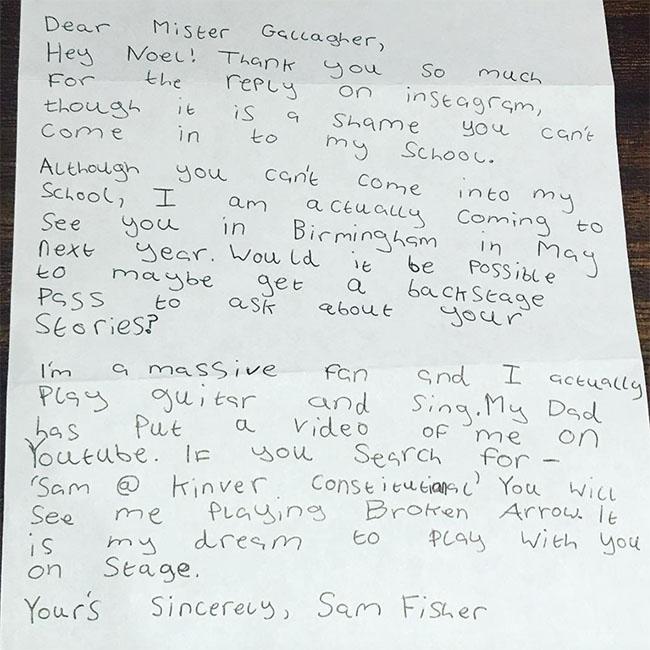 Dear Mister Gallagher,
Hey Noel! Thank you so much
For the reply on instagram,
though it is a shame you can't
come in to my School.
Although you can't come into my
School, I am actually coming to
See you in Birmingham in May
next year. Would it be possible
to maybe get a backstage
Pass to ask about your
Stories?
I'm a massive fan and I actually
Play guitar and Sing. My Dad
has Put a video of me on
Youtube. If you Search for -
'Sam @ Kinver Constitutional' You will
See me Playing Broken Arrow. It
is my dream to play with you
on Stage.
Your's Sincerely, Sam Fisher